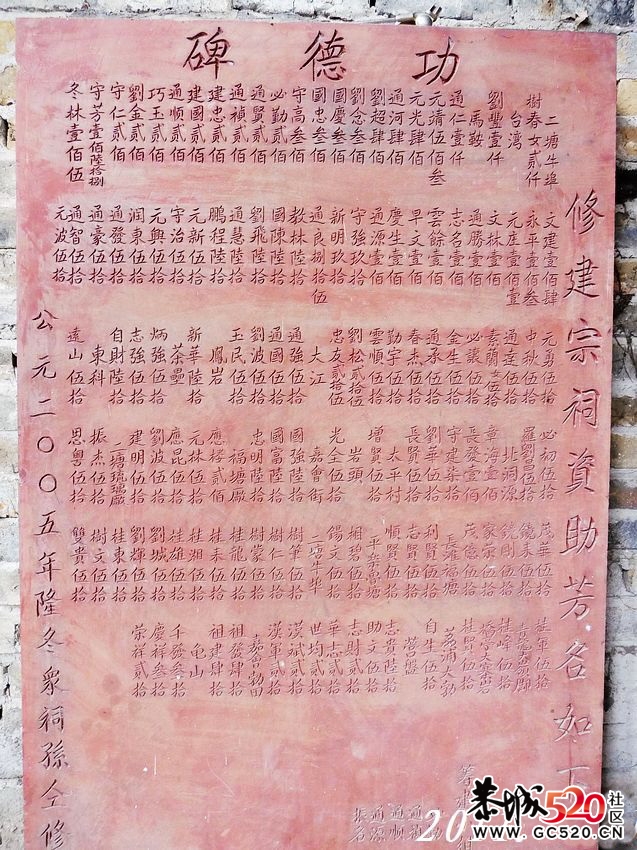 功德碑
修建宗祠資助芳名如下
二塘牛埠
樹春女貳仟
台湾
劉豐壹仟
馬鞍
通仁壹仟
元靖伍佰叁
元光肆佰
通河肆佰
劉超肆佰
劉念叁佰
國慶叁佰
國忠叁佰
守高叁佰
必勤貳佰
通賢貳佰
通禎貳佰
建忠貳佰
建國貳佰
通顺貳佰
巧玉貳佰
劉金貳佰
守仁貳佰
守芳壹佰陸拾捌
冬林壹佰伍
文建壹佰肆
永平壹佰叁
元庄壹佰壹
文林壹佰
通勝壹佰
志名壹佰
雲餘壹佰
早文壹佰
慶生壹佰
通源壹佰
守強玖拾
新明玖拾
通良捌拾伍
教林陸拾
國陳陸拾
劉飛陸拾
通慧陸拾
鵬程陸拾
元新伍拾
守治伍拾
元興伍拾
润東伍拾
通發伍拾
通豪伍拾
通智伍拾
元波伍拾
元勇伍拾
中秋伍拾
通達伍拾
素蘭女伍拾
必讓伍拾
金生伍拾
通承伍拾
春杰伍拾
勤宇伍拾
雲順伍拾
劉松貳拾伍
忠友貳拾伍
大江
通強伍拾
通國伍拾
劉波伍拾
玉民伍拾
鳳岩
新華陸拾
茶壘
炳強伍拾
志強伍拾
自財陸拾
東科
遠山伍拾
必初伍拾
北洞源
章海壹佰
長發壹佰
守建柒拾
劉華伍拾
長賢伍拾
太平村
增賢伍拾
岩頭
光全伍拾
嘉會街
國強陸拾
國富陸拾
忠明陸拾
福塘廠
應移貳佰
元林伍拾
應昆伍拾
劉波伍拾
建明伍拾
二塘琉璃廠
振杰伍拾
思粵伍拾
茂華伍拾
饒未伍拾
饒則伍拾
家宗伍拾
茂億伍拾
長灘福塘
利賢伍拾
志賢伍拾
順賢伍拾
相碧伍拾
錫文伍拾
二塘牛埠
樹筆伍拾
樹仁伍拾
樹蒙伍拾
桂龍伍拾
桂禾伍拾
桂湘伍拾
桂雄伍拾
劉城伍拾
劉輝伍拾
桂東伍拾
樹文伍拾
雙貴伍拾
桂軍伍拾
桂峰伍拾
桂賢伍拾
自生伍拾
營盤
志貴陸拾
助文伍拾
志財貳拾
華志貳拾
世均貳拾
漢斌貳拾
漢軍貳拾
祖發肆拾
祖建肆拾
龟山
千發叁拾
慶祥叁拾
榮祥貳拾
公元二〇〇五年隆冬衆祠孫仝修
籌建
通順
通源
振名
恭城520社区
WWW.GC520.CN